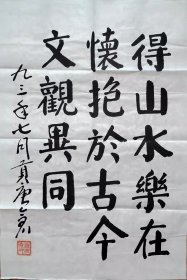 得山水樂在
懷抱於古今
文觀異同
九三年七月